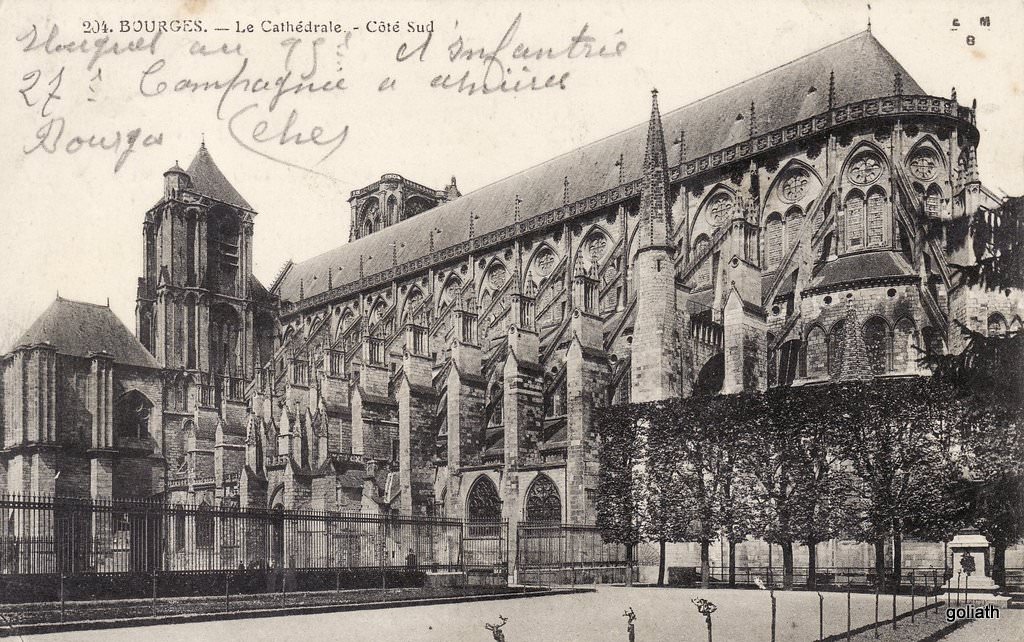 204. BOURGES. — Le Cathédrale. - Côté Sud
E M
B
Huguet au 95e d'infantrie
27e Compagnie a
Bourges Cher
goliath